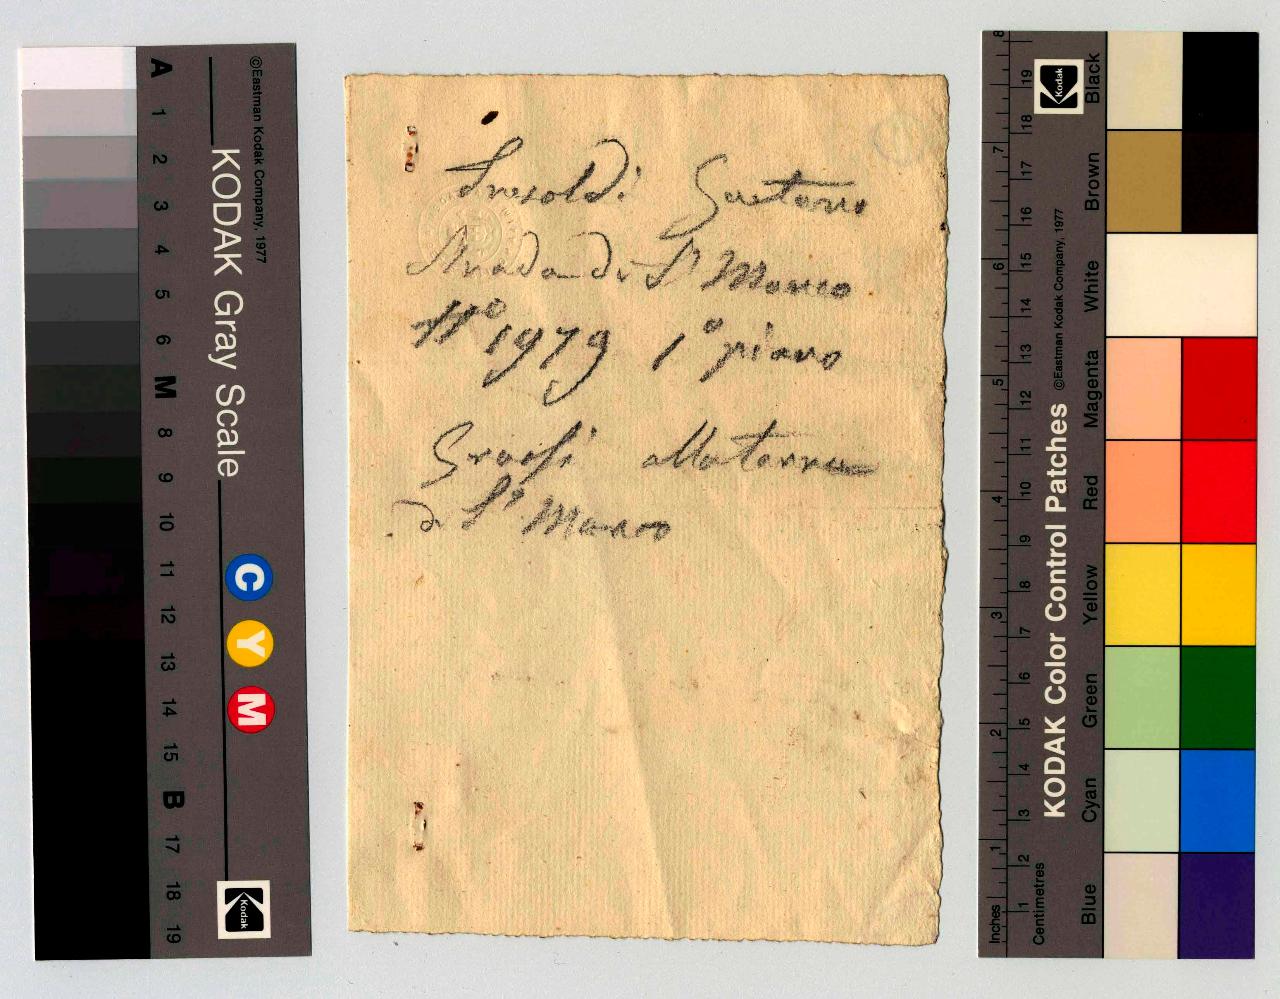 ©Eastman Kodak Company, 1977
KODAK Gray Scale
A 1 2 3 4 5 6 M 8 9 10 11 12 13 14 15 B 17 18 19
C Y M
Kodak
Tresoldi Gaetano
Strada di S. Marco
N.º 1979 1º piano
Grassi alla torre
di S. Marco
Kodak
KODAK Color Control Patches ©Eastman Kodak Company, 1977
Blue Cyan Green Yellow Red Magenta White Brown Black
Inches 1 2 3 4 5 6 7 8
Centimetres 1 2 3 4 5 6 7 8 9 10 11 12 13 14 15 16 17 18 19